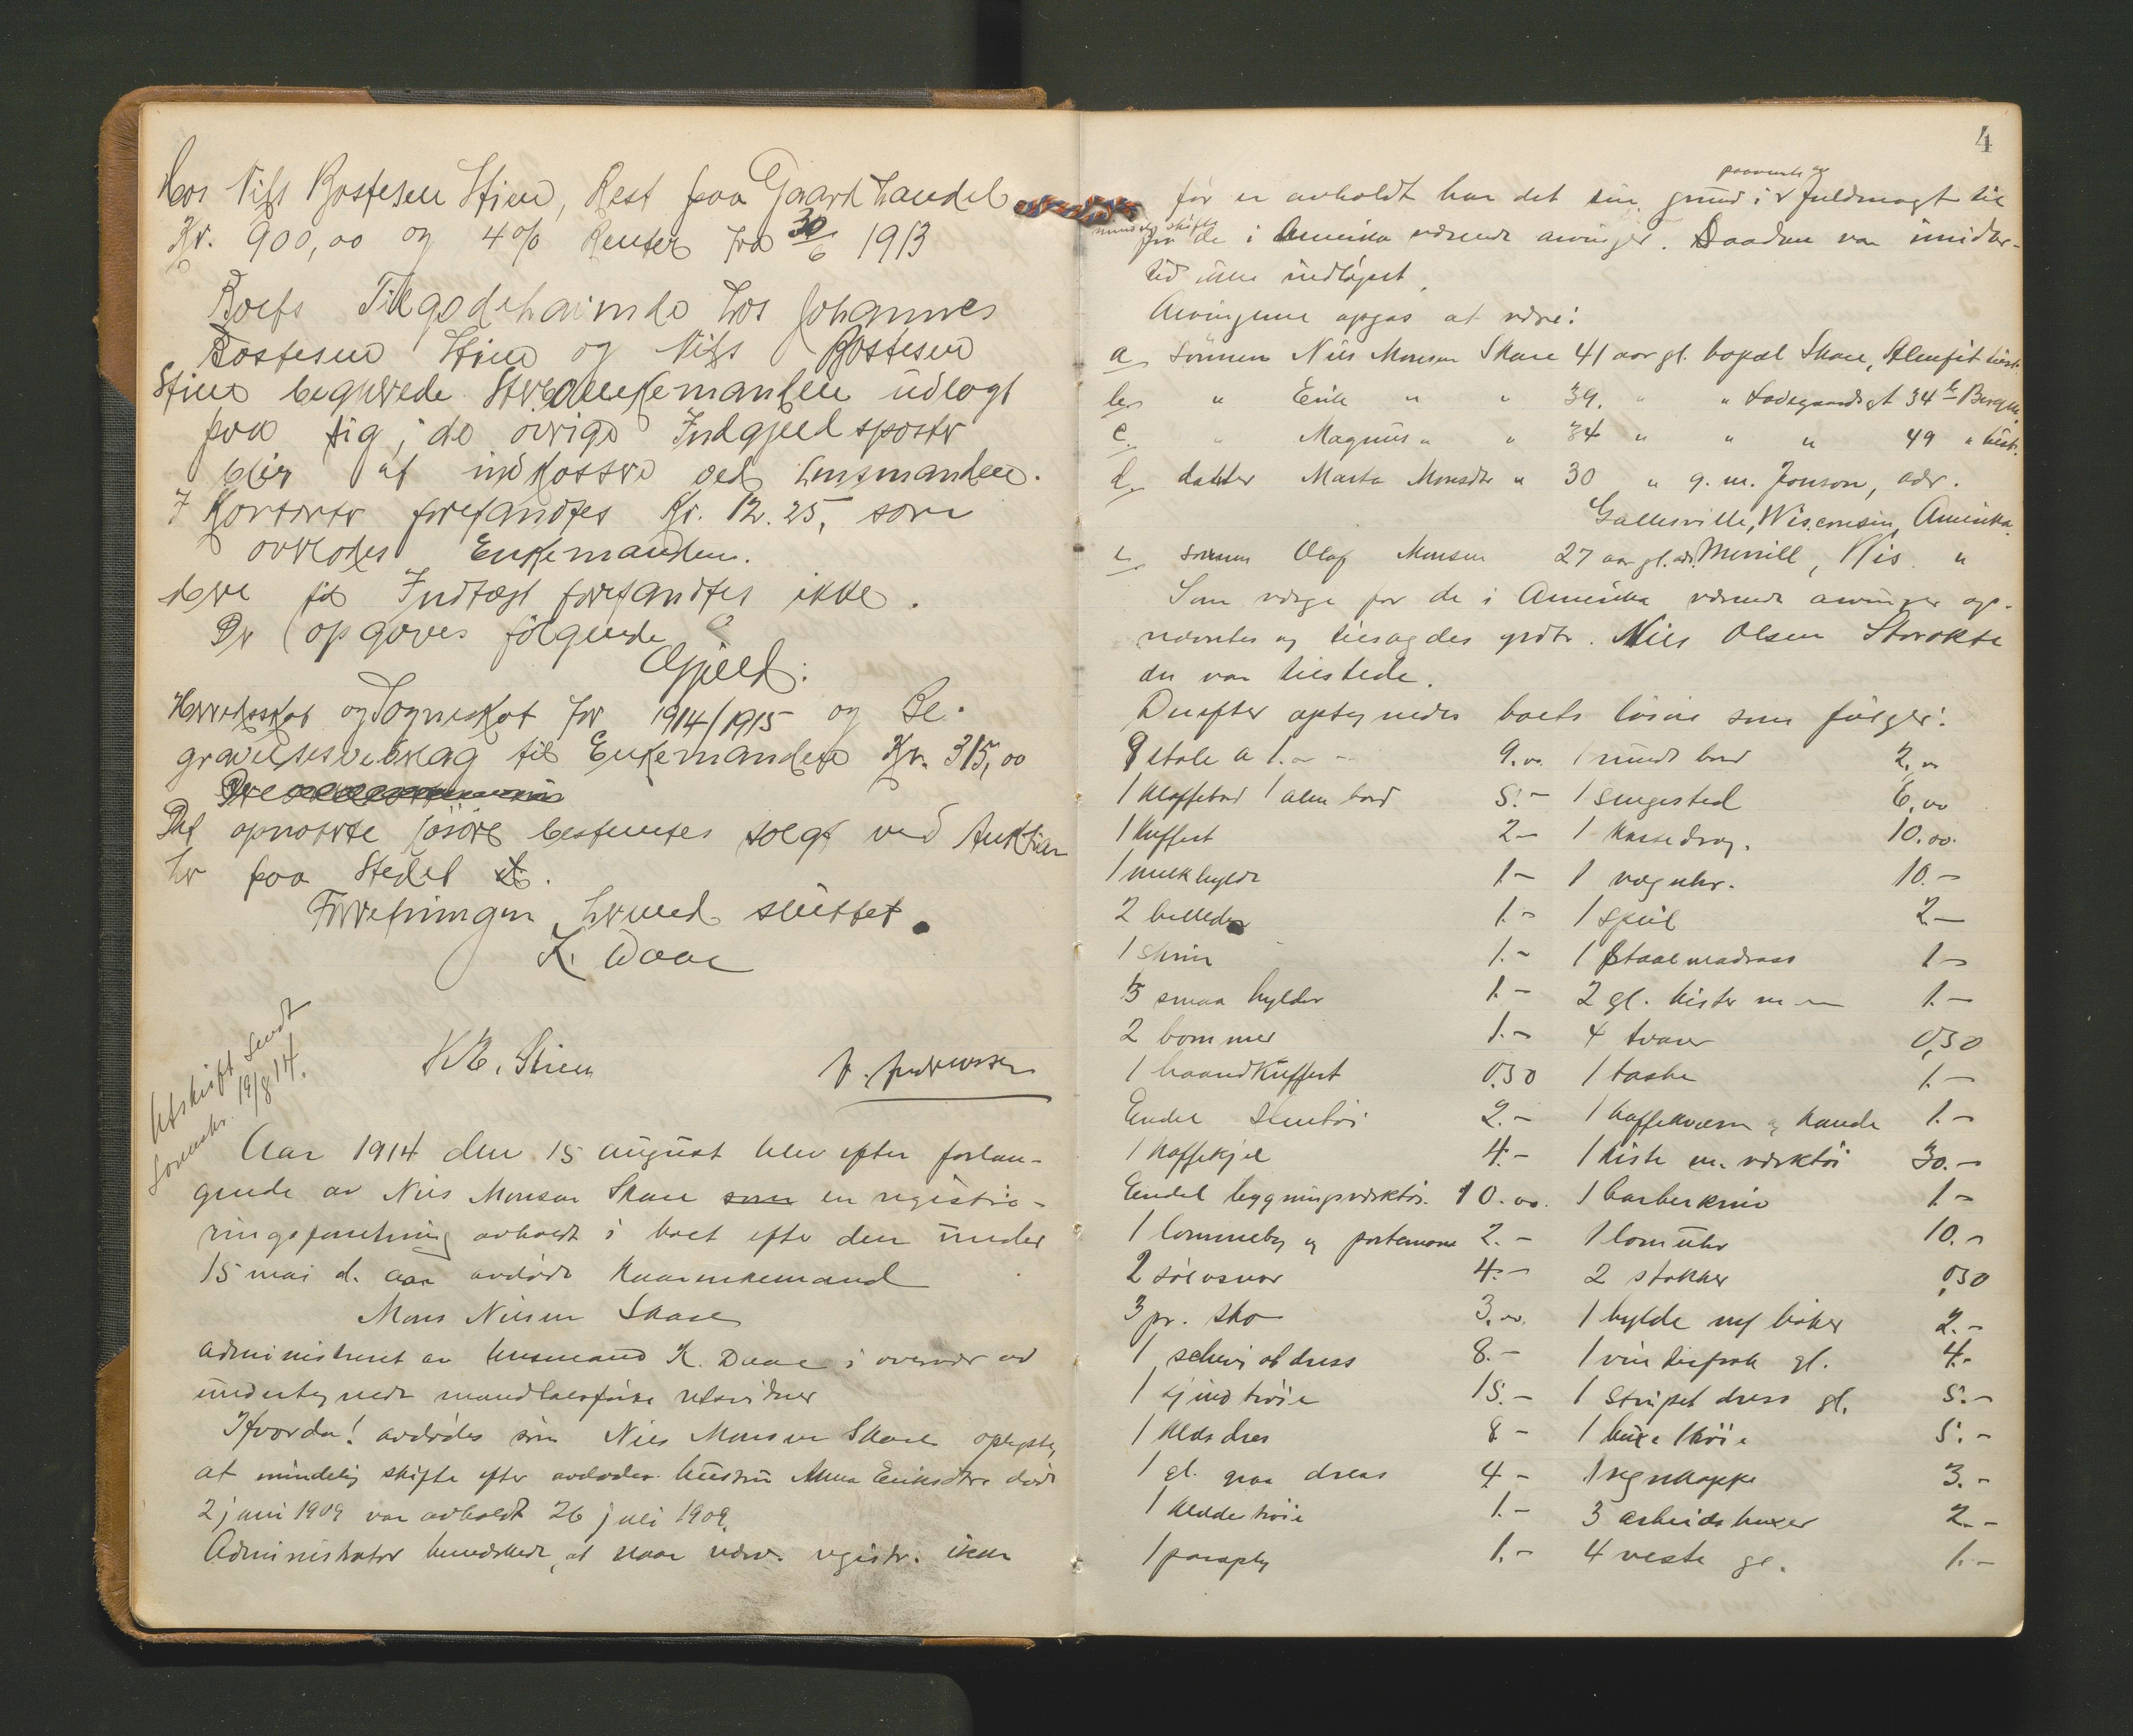 Hos Nils Bostesen Stien, Rest paa Gaardhandel
Kr. 900,00 og 4% Renter fra 30/6 1913
Boets Tilgodehavende hos Johannes
Bostesen Stien og Nils Bostesen
Stien begjærede Enkemanden udlagt
paa sig, de øvrige Indgjeldsposter
blir at indkassere ved Lensmanden.
I Kontanter forefandtes Kr. 12.25, som
overlodes Enkemanden.
Mere til Indtægt forefandtes ikke.
Der opgaves følgende
Gjeld:
Herredsskat og Sogneskat for 1914/1915 og Be-
gravelsesbidrag til Enkemanden Kr. 315,00
Det opnoterte løsøre bestemtes solgt ved Auktion
her paa Stedet.
Forretningen hermed sluttet.
K. Daae
Utskrift sendt
Sorenskr. 19/8 14.
Aar 1914 den 15 august blev efter forlan-
gende av Nils Monsen Skare som en registre-
ringsforretning avholdt i boet efter den under
15 mai d. aar avdøde kaarenkemand
Mons Nilsen Skare
administreret av lensmand K. Daae i overvær av
undertegnede mandtalsførte retsvidner
Hvorda! avdødes søn Nils Monsen Skare oplyste,
at mindelig skifte efter avdødes hustru Anna Eriksdtr. død
2 juni 1909 var avholdt 26 juli 1909.
Administrator bemerkede, at naar nærv. registr. ikke
4
paavente av
før er avholdt har det sin grund i fuldmagt til
mindelig skifte
fra de i Amerika værende arvinger. Saadan var imidler-
tid ikke indløpet.
Arvingerne opgas at være:
a. sønnen Nils Monsen Skare 41 aar gl. bopæl Skare, tilst.
b. " Erik " " 39. " " Ladegaardsgt 34 Bergen
c. " Magnus " " 34 " " " 49 " tilst.
d. datter Marta Monsdtr " 30 " g. m. Jonson, adr.
Gallesville, Wisconsin, Amerika.
e. sønnen Olaf Monsen 27 aar gl. adr. Merrill, Wis. "
Som værge for de i Amerika værende arvinger op-
nævntes og tilsagdes grdbr. Nils Olsen
der var tilstede.
Derefter optegnedes boets løsøre som følger:
9 stole a 1.00 9.00 1 rundt bord 2,00
1 klaffebord 1 alm bord 5.- 1 sengested 6,00
1 kuffert 2- 1 kassedrag. 10.00
1 melkhylde 1- 1 væguhr. 10.-
2 billeder 1.- 1 speil 2-
1 skrin 1.- 1 Staalmadrass 1-
5 smaa hylder 1.- 2 gl. kister m m 1.-
2 bommer 1.- 4 tvarer 0,50
1 haandkuffert 0,50 1 taske 1.-
Endel stentøi 2.- 1 kaffekvern og kande 1.-
1 kaffekjel 4.- 1 kiste m. værktøi 30.-
Endel bygningsværktøi. 10.00. 1 barberkniv 1.-
1 lommebog og portemone 2.- 1 lomuhr 10.-
2 4.- 2 stokker 0,50
3 pr. sko 3,00. 1 hylde m/ bøker 2.-
1 dress 8.- 1 vinterfrak gl. 4.-
1 trøie 15.- 1 stripet dress gl. 5.-
1 klds dres 8- 1 buxe 1 trøie 5.-
1 gl. graa dress 4- 1 regnkappe 3.-
1 kledde trøie 1.- 3 arbeidsbuxer 2.-
1 paraply 1.- 4 veste gl. 1.-